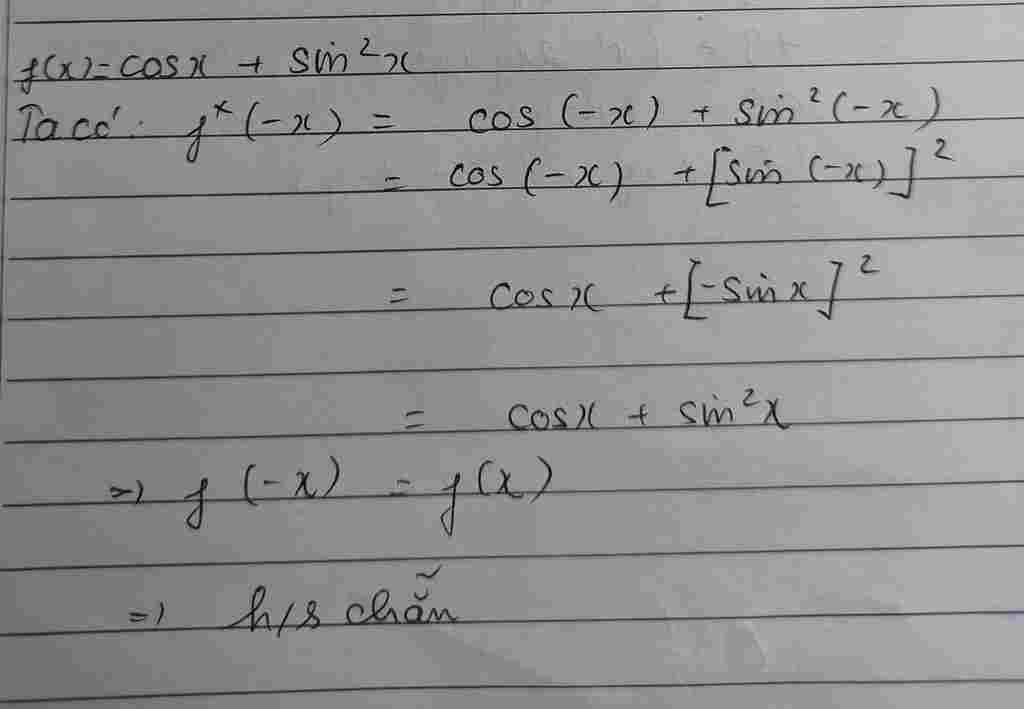 f(x)=cosx + sin²x
Ta có: f*(-x) = cos(-x) + sin²(-x)
= cos(-x) + [sin(-x)]²
= cosx + [-sinx]²
= cosx + sin²x
=) f(-x) = f(x)
=) h/s chẵn